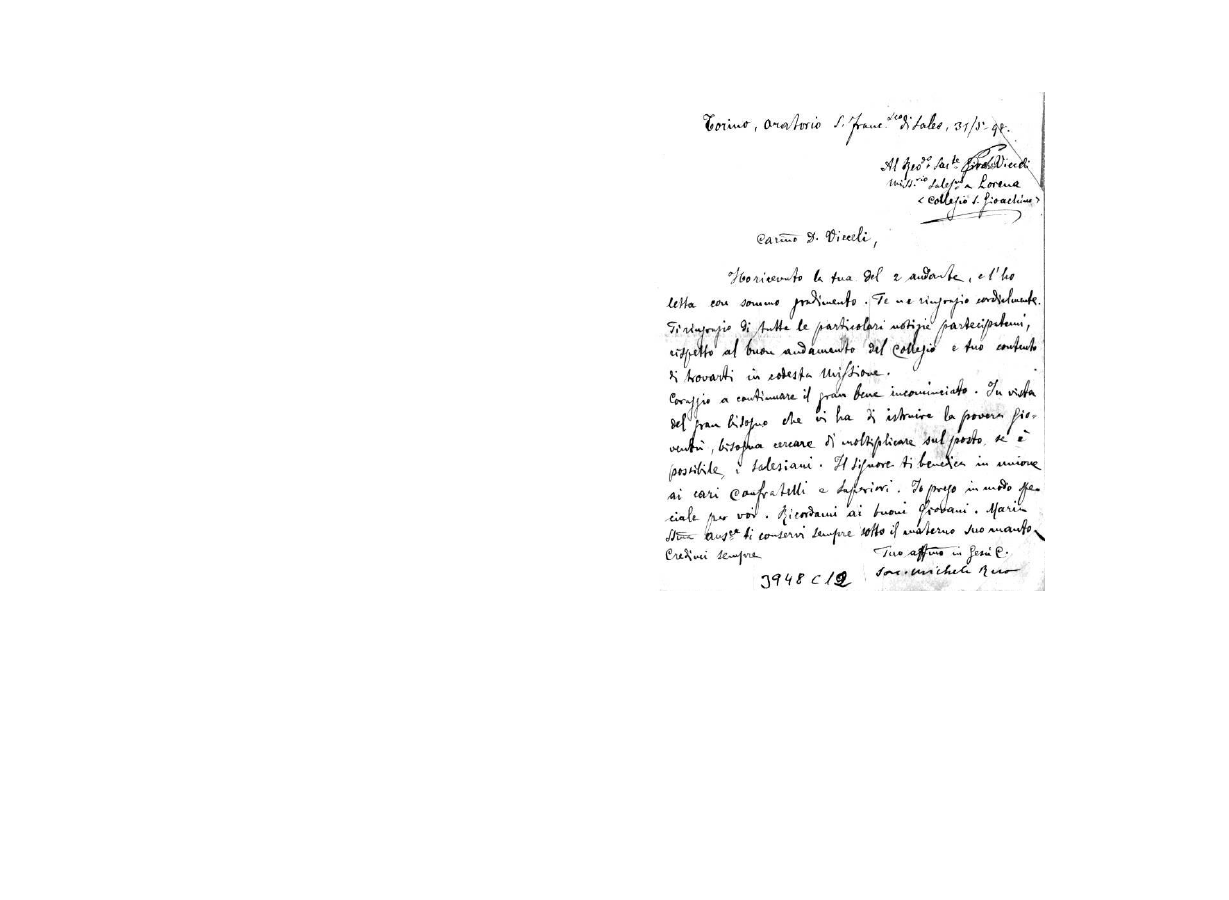 Torino, Oratorio S. Franc.sco di Sales, 31/5-98.
Al Rev.do Sac.te Vieceli
Miss.rio Sales.no a Lorena
<Collegio S. Gioachino>
Carmo D. Viecceli,
Ho ricevuto la tua del 2 andante, e l'ho
letta con sommo gradimento. Te ne ringrazio cordialmente.
Ti ringrazio di tutte le particolari notizie partecipatemi,
rispetto al buon andamento del Collegio e tuo contento
di trovarti in codesta Missione.
Coraggio a continuare il gran bene incominciato. In vista
del gran bisogno che vi ha di istruire la povera gio-
ventù, bisogna cercare di moltiplicare sul posto, se è
possibile, i Salesiani. Il Signore ti benedica in unione
ai cari Confratelli e Superiori. Io prego in modo spe-
ciale per voi. Ricordami ai buoni Giovani. Maria
SSma Aus.ce ti conservi sempre sotto il materno suo manto.
Credimi sempre
Tuo affmo in Gesù C.
Sac. Michele Rua
3948 C 12